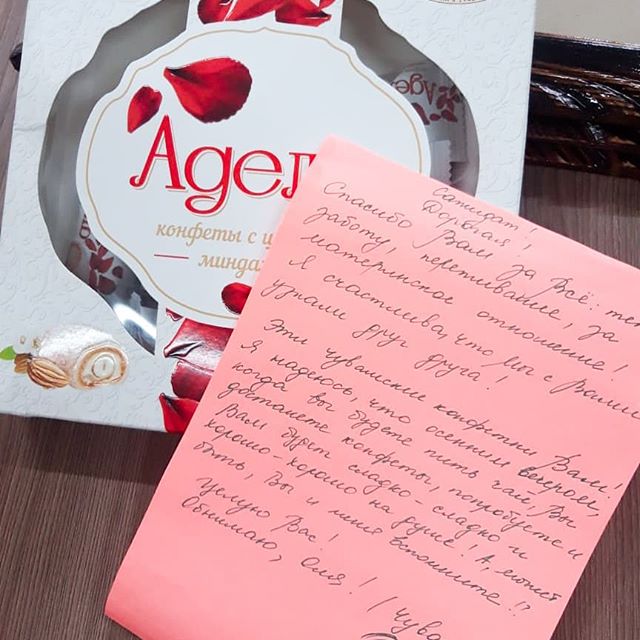 Адел
конфеты с ц
минда
Адел
Сапидат!
Дорогая!
Спасибо Вам за Всё: те
заботу, переживание, за
материнское отношение!
Я счастлива, что Мы с Вами
узнали друг друга!
Эти чувашские конфеты Вам!
Я надеюсь, что осенним вечером,
когда вы будете пить чай, Вы
достанете конфеты, попробуете и
Вам будет сладко-сладко и
хорошо-хорошо на душе! А, может
быть, Вы и меня вспомните!?
Целую Вас!
Обнимаю, Оля! (Чува